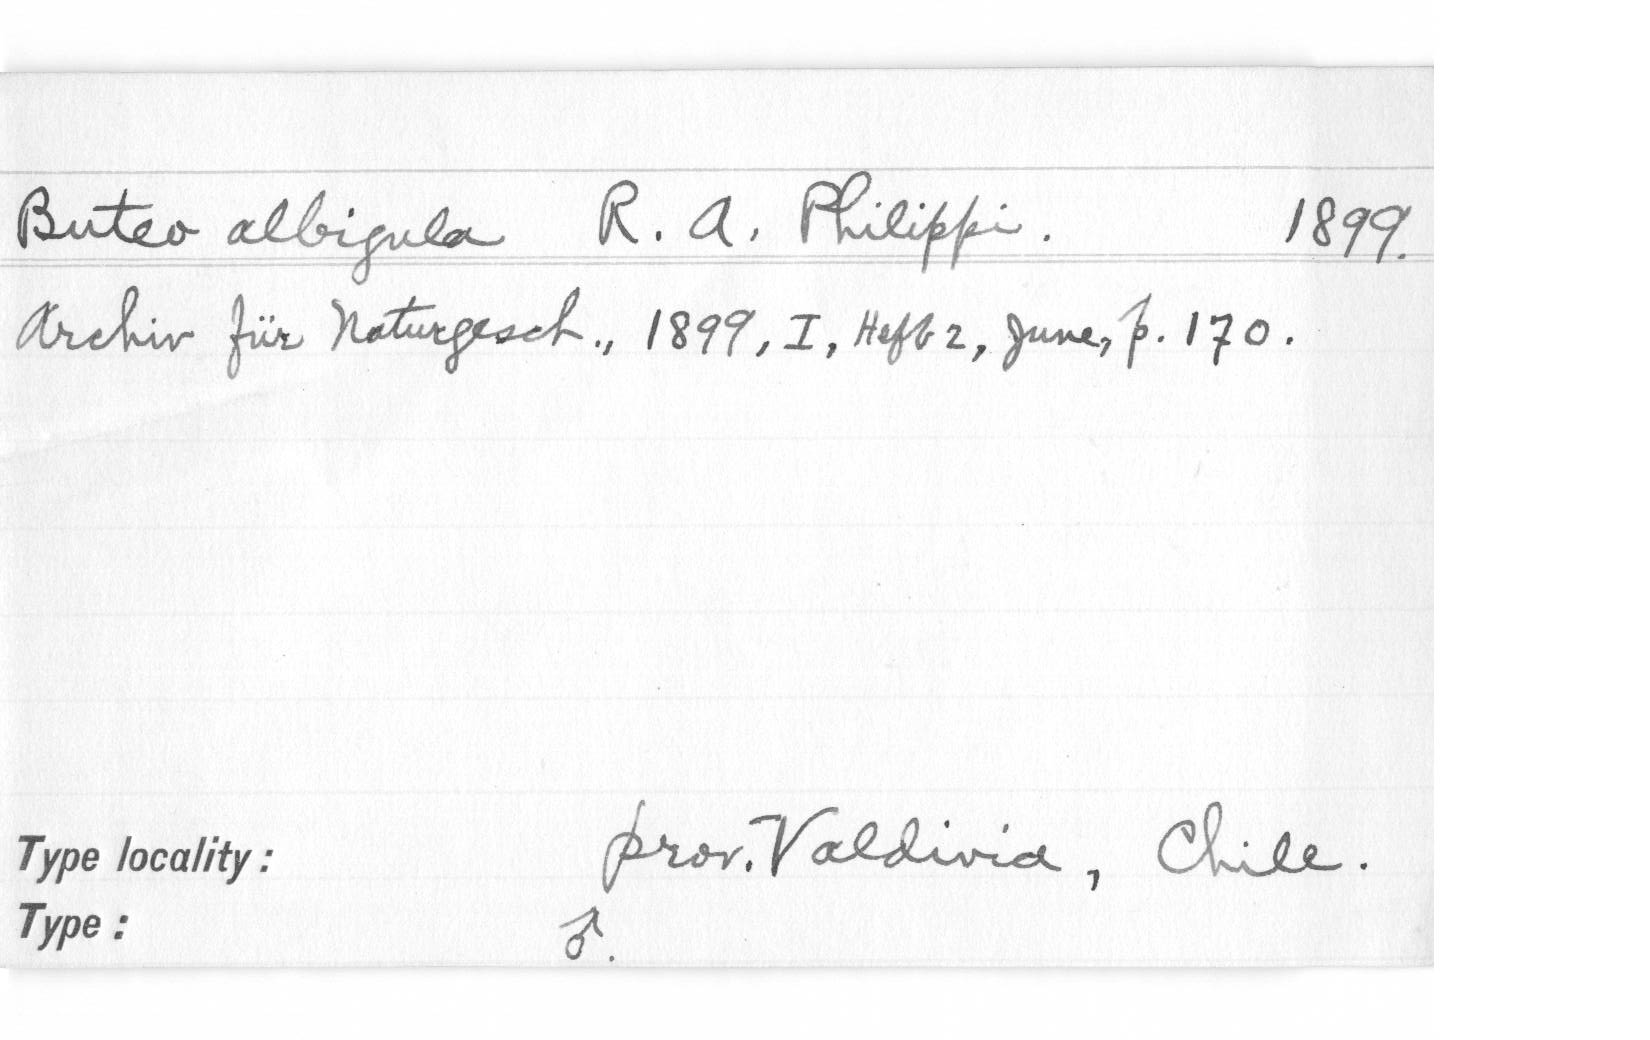 Buteo albigula R. A. Philippi. 1899.
Archiv für Naturgesch., 1899, I, Heft 2, June, p. 170.
Type locality: prov. Valdivia, Chile.
Type: ♂.